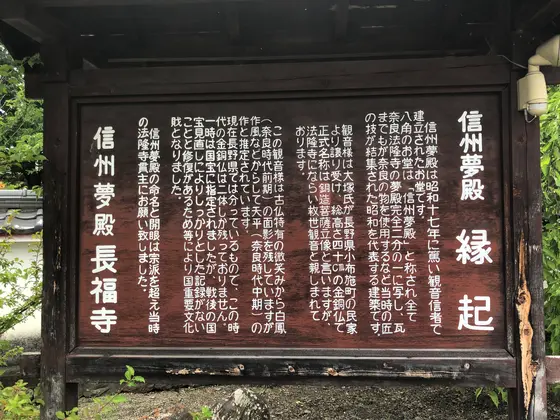 信州夢殿 縁起
信州夢殿は昭和十七年に篤い観音信者で
建立されたお堂です。
八角の御堂は「信州夢殿」と称され全て
奈良法隆寺の夢殿完全二分の一に写し、瓦
までもが奈良の物を使用するなど当時の匠
の技が結集された昭和を代表する建築です。
観音様は大塚氏が長野県小布施町の民家
より譲り受けた総高さ四十㎝の金銅仏で
正式名称は銅造菩薩立像と言いますが、
法隆寺にならい救世観音と親しまれて
おります。
この観音様は古仏特有の微笑みから白鳳
(奈良時代前期)の面影を残していますが
作風などからして天平(奈良時代中期)の
作と推定されています。
現在長野県では分っているもので、この時
代の金銅仏は二体しか残っておりません。
一時は国宝に指定されましたが、戦後の国
宝見直しによりしっかりとした記録がない
ことと修復があるため等により国重要文化
財となりました。
信州夢殿の命名と開眼は宗派を超え当時
の法隆寺貫主にお願い致しました。
信州夢殿 長福寺